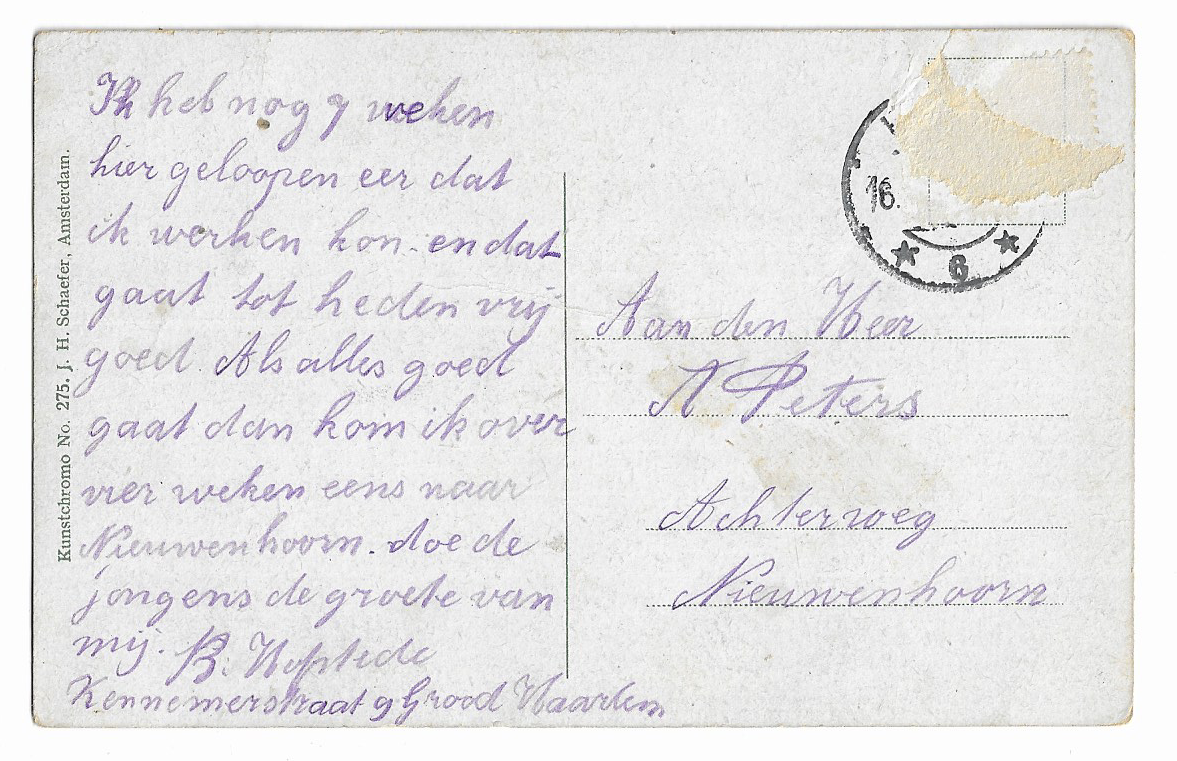 Ik heb nog 9 weken
hier geloopen eer dat
ik werken kon. en dat
gaat tot heden vrij
goed. Als alles goed
gaat dan kom ik over
vier weken eens naar
Nieuwenhoorn. doe de
jongens de groete van
mij. B.
Kennemerstraat 9 Grood Haarlem
Kunstchromo No. 275. J. H. Schaefer, Amsterdam.
16.
6
Aan den Heer
A Peters
Achterweg
Nieuwenhoorn